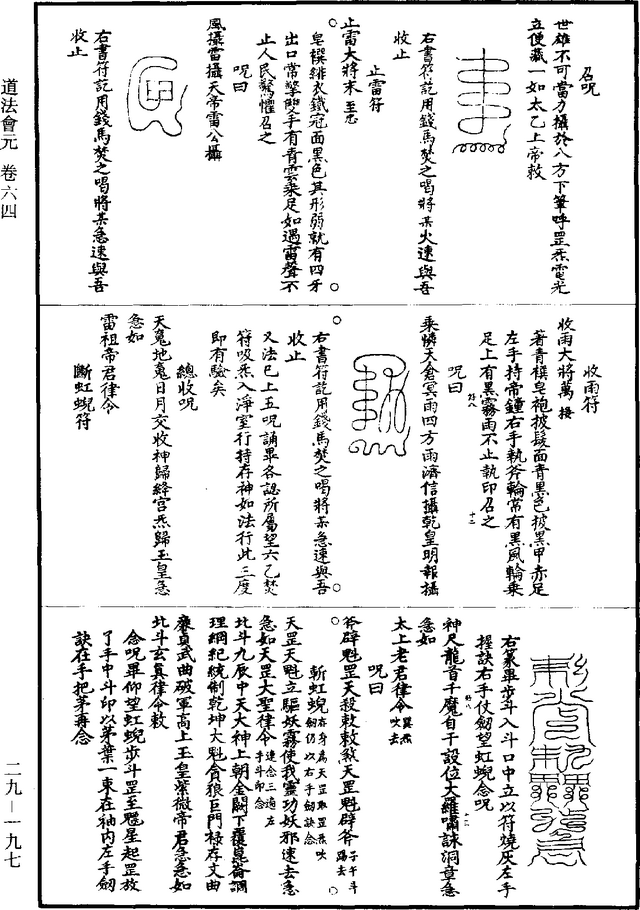 召呪
世雄不可當力攝於八方下筆呼罡炁電光
立便藏一如太乙上帝敕
右書符訖用錢馬焚之喝將某火速與吾
收止
止雷符
止雷大將朱 至忠
皂襆緋衣鐵冠面黑色其形弱就有四牙
出口常擎雙手有青雲乘足如遇雷聲不
止人民驚懼召之
呪曰
風攝雷攝天帝雷公攝
右書符訖用錢馬焚之喝將某急速與吾
收止
收雨符
收雨大將萬
著青襆皂袍披髮面青黑色披黑甲赤足
左手持帝鐘右手執斧輪常有黑風輪乘
足上有黑霧雨不止執印召之
呪曰
乘憐天倉冥雨四方雨濟信攝乾皇明報攝
右書符訖用錢馬焚之喝將某急速與吾
收止
又法已上五呪誦畢各認所屬望六乙焚
符吸炁入淨室行持存神如法行此三度
即有驗矣
總收呪
天冤地冤日月交收神歸絳宮炁歸玉皇急
急如
雷祖帝君律令
斷虹蜺符
右篆畢步斗入斗口中立以符燒灰左手
握訣右手仗劒望虹蜺念呪
神尺龍首千魔自干設位大羅嘯誅洞章急
急如
太上老君律令
呪曰
斧辟魁罡天殺敕敕煞天罡魁辟斧
斬虹蜺
天罡天魁立驅妖霧使我靈功妖邪速去急
急如天罡大聖律令
北斗九辰中天大神上朝金闕下覆崑崙調
理綱紀統制乾坤大魁貪狼巨門祿存文曲
廉貞武曲破軍高上玉皇紫微帝君急急如
北斗玄真律令敕
念呪畢仰望虹蜺步斗罡至魁星起罡放
了手中斗印以茅葉一束在袖內左手劒
訣在手把茅再念
道法會元 卷六四
二九－一九七